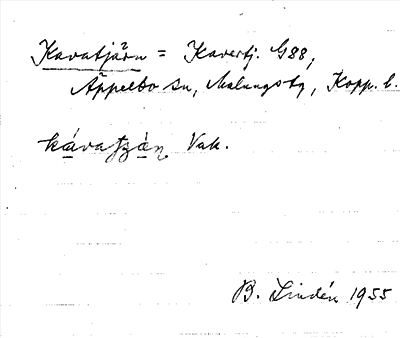 Kavatjärn = Kavertj. G88,
Äppelbo sn, Malungs tg, Kopp. l.
kávatʒàn Vak.
B. Lindén 1955